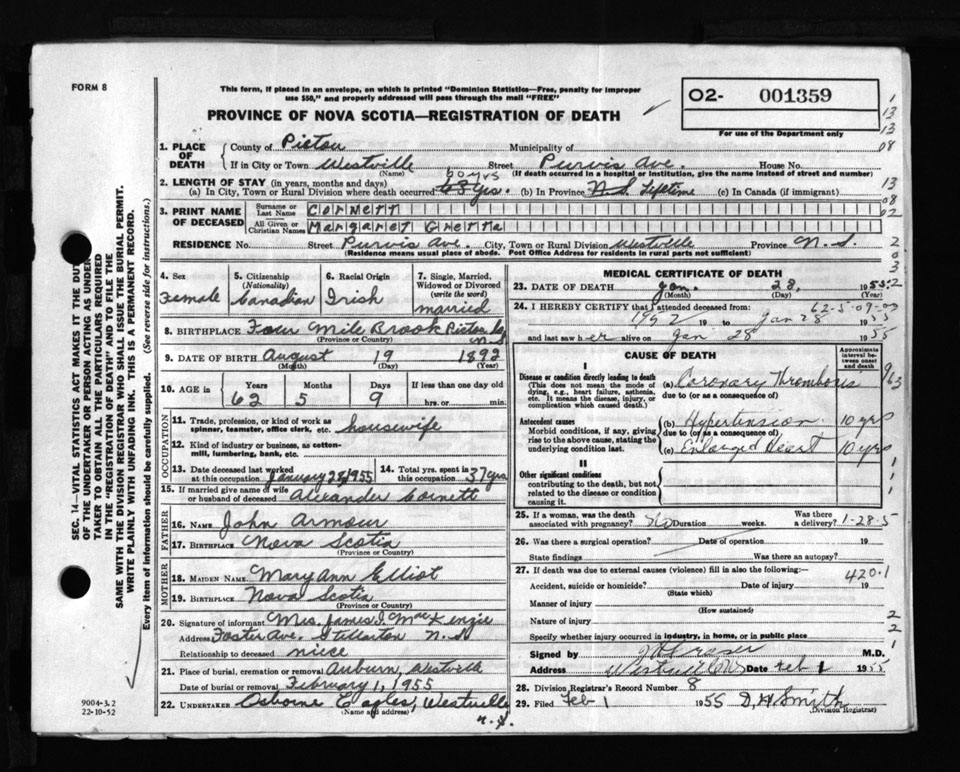 FORM 8
This form, if placed in an envelope, on which is printed "Dominion Statistics—Free, penalty for improper
use $50," and properly addressed will pass through the mail "FREE"
O2- 001359
For use of the Department only
PROVINCE OF NOVA SCOTIA—REGISTRATION OF DEATH
1. PLACE OF DEATH County of Pictou Municipality of
If in City or Town Westville Street Purvis Ave. House No.
(Name) (If death occurred in a hospital or institution, give the name instead of street and number)
2. LENGTH OF STAY (in years, months and days)
60 yrs
(a) In City, Town or Rural Division where death occurred 43 yrs. (b) In Province N.S. Lifetime (c) In Canada (if immigrant)
3. PRINT NAME OF DECEASED Surname or Last Name Cornett
All Given or Christian Names Margaret Gretta
RESIDENCE No. Street Purvis Ave. City, Town or Rural Division Westville Province N.S.
(Residence means usual place of abode. Post Office Address for residents in rural parts not sufficient)
4. Sex Female
5. Citizenship (Nationality) Canadian
6. Racial Origin Irish
7. Single, Married, Widowed or Divorced (write the word) married
8. BIRTHPLACE Four Mile Brook Pictou Co N.S.
(Province or Country)
9. DATE OF BIRTH August 19 1892
(Month) (Day) (Year)
10. AGE in Years Months Days If less than one day old
62 5 9 hrs. or min.
OCCUPATION
11. Trade, profession, or kind of work as spinner, teamster, office clerk, etc. housewife
12. Kind of industry or business, as cotton-mill, lumbering, bank, etc.
13. Date deceased last worked at this occupation January 28 1955
14. Total yrs. spent in this occupation 37 yrs
15. If married give name of wife or husband of deceased Alexander Cornett
FATHER
16. NAME John Armour
17. BIRTHPLACE Nova Scotia
(Province or Country)
MOTHER
18. MAIDEN NAME Mary Ann Elliot
19. BIRTHPLACE Nova Scotia
(Province or Country)
20. Signature of informant Mrs. James I. MacKenzie
Address Foster Ave. Stellarton N.S.
Relationship to deceased niece
21. Place of burial, cremation or removal Auburn, Westville
Date of burial or removal February 1, 1955
22. UNDERTAKER Osborne Eagles, Westville
(Name and address) N.S.
MEDICAL CERTIFICATE OF DEATH
23. DATE OF DEATH Jan. 28, 1955
(Month) (Day) (Year)
24. I HEREBY CERTIFY that I attended deceased from
1952 19 to Jan 28 1955
and last saw her alive on Jan 28 1955
CAUSE OF DEATH
Approximate interval between onset and death
I
Disease or condition directly leading to death
(This does not mean the mode of dying, e.g., heart failure, asthenia, etc. It means the disease, injury, or complication which caused death.)
(a) Coronary Thrombosis
due to (or as a consequence of)
Antecedent causes
Morbid conditions, if any, giving rise to the above cause, stating the underlying condition last.
(b) Hypertension 10 yrs
due to (or as a consequence of)
(c) Enlarged Heart 10 yrs
II
Other significant conditions
contributing to the death, but not related to the disease or condition causing it.
25. If a woman, was the death associated with pregnancy? No Duration weeks. Was there a delivery? 1-28-5
26. Was there a surgical operation? Date of operation 19
State findings Was there an autopsy?
27. If death was due to external causes (violence) fill in also the following:—
420.1
Accident, suicide or homicide? Date of injury 19
(State which)
Manner of injury
(How sustained)
Nature of injury
Specify whether injury occurred in industry, in home, or in public place
Signed by M.D.
Address Westville NS Date Feb 1 1955
28. Division Registrar's Record Number 8
29. Filed Feb 1 1955 D. H. Smith
(Division Registrar)
SEC. 14—VITAL STATISTICS ACT MAKES IT THE DUTY
OF THE UNDERTAKER OR PERSON ACTING AS UNDER-
TAKER TO OBTAIN ALL THE PARTICULARS REQUIRED
IN THE "REGISTRATION OF DEATH" AND TO FILE THE
SAME WITH THE DIVISION REGISTRAR WHO SHALL ISSUE THE BURIAL PERMIT.
WRITE PLAINLY WITH UNFADING INK. THIS IS A PERMANENT RECORD.
Every item of information should be carefully supplied. (See reverse side for instructions.)
9004-3.2
22-10-52